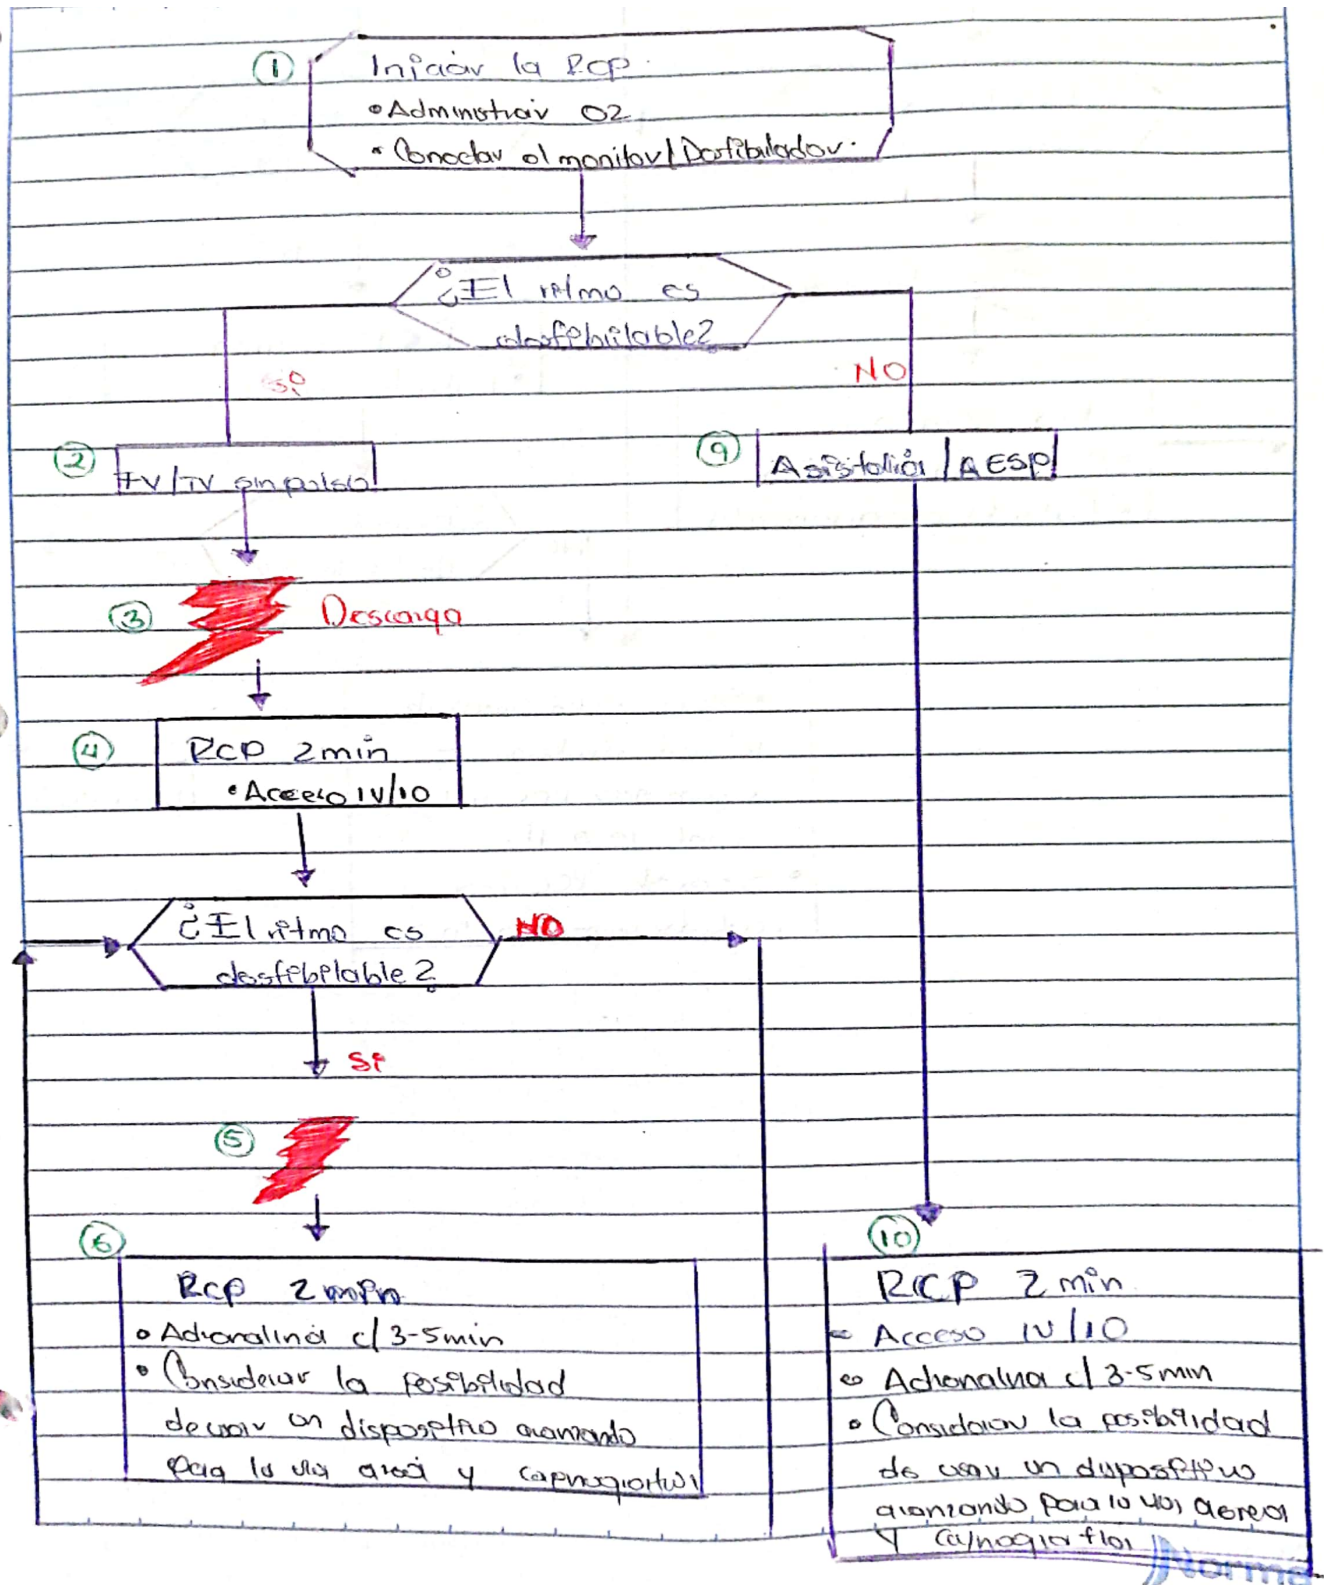 ① Iniciar la RCP.
• Administrar O2
• Conectar el monitor/Desfibrilador.
¿El ritmo es
desfibrilable?
sí
NO
② FV/TV sin pulso
⑨ Asistolia/AESP
③ Descarga
④ RCP 2 min
• Acceso IV/IO
¿El ritmo es
desfibilable?
NO
Si
⑤
⑥
RCP 2 min
• Adrenalina c/3-5min
• Considerar la posibilidad
de usar un dispositivo avanzado
para la via area y capnografia
⑩
RCP 2 min
• Acceso IV/IO
• Adrenalina c/3-5min
• Considerar la posibilidad
de usar un dispositivo
avanzando para la via aerea
y capnografia
Norma